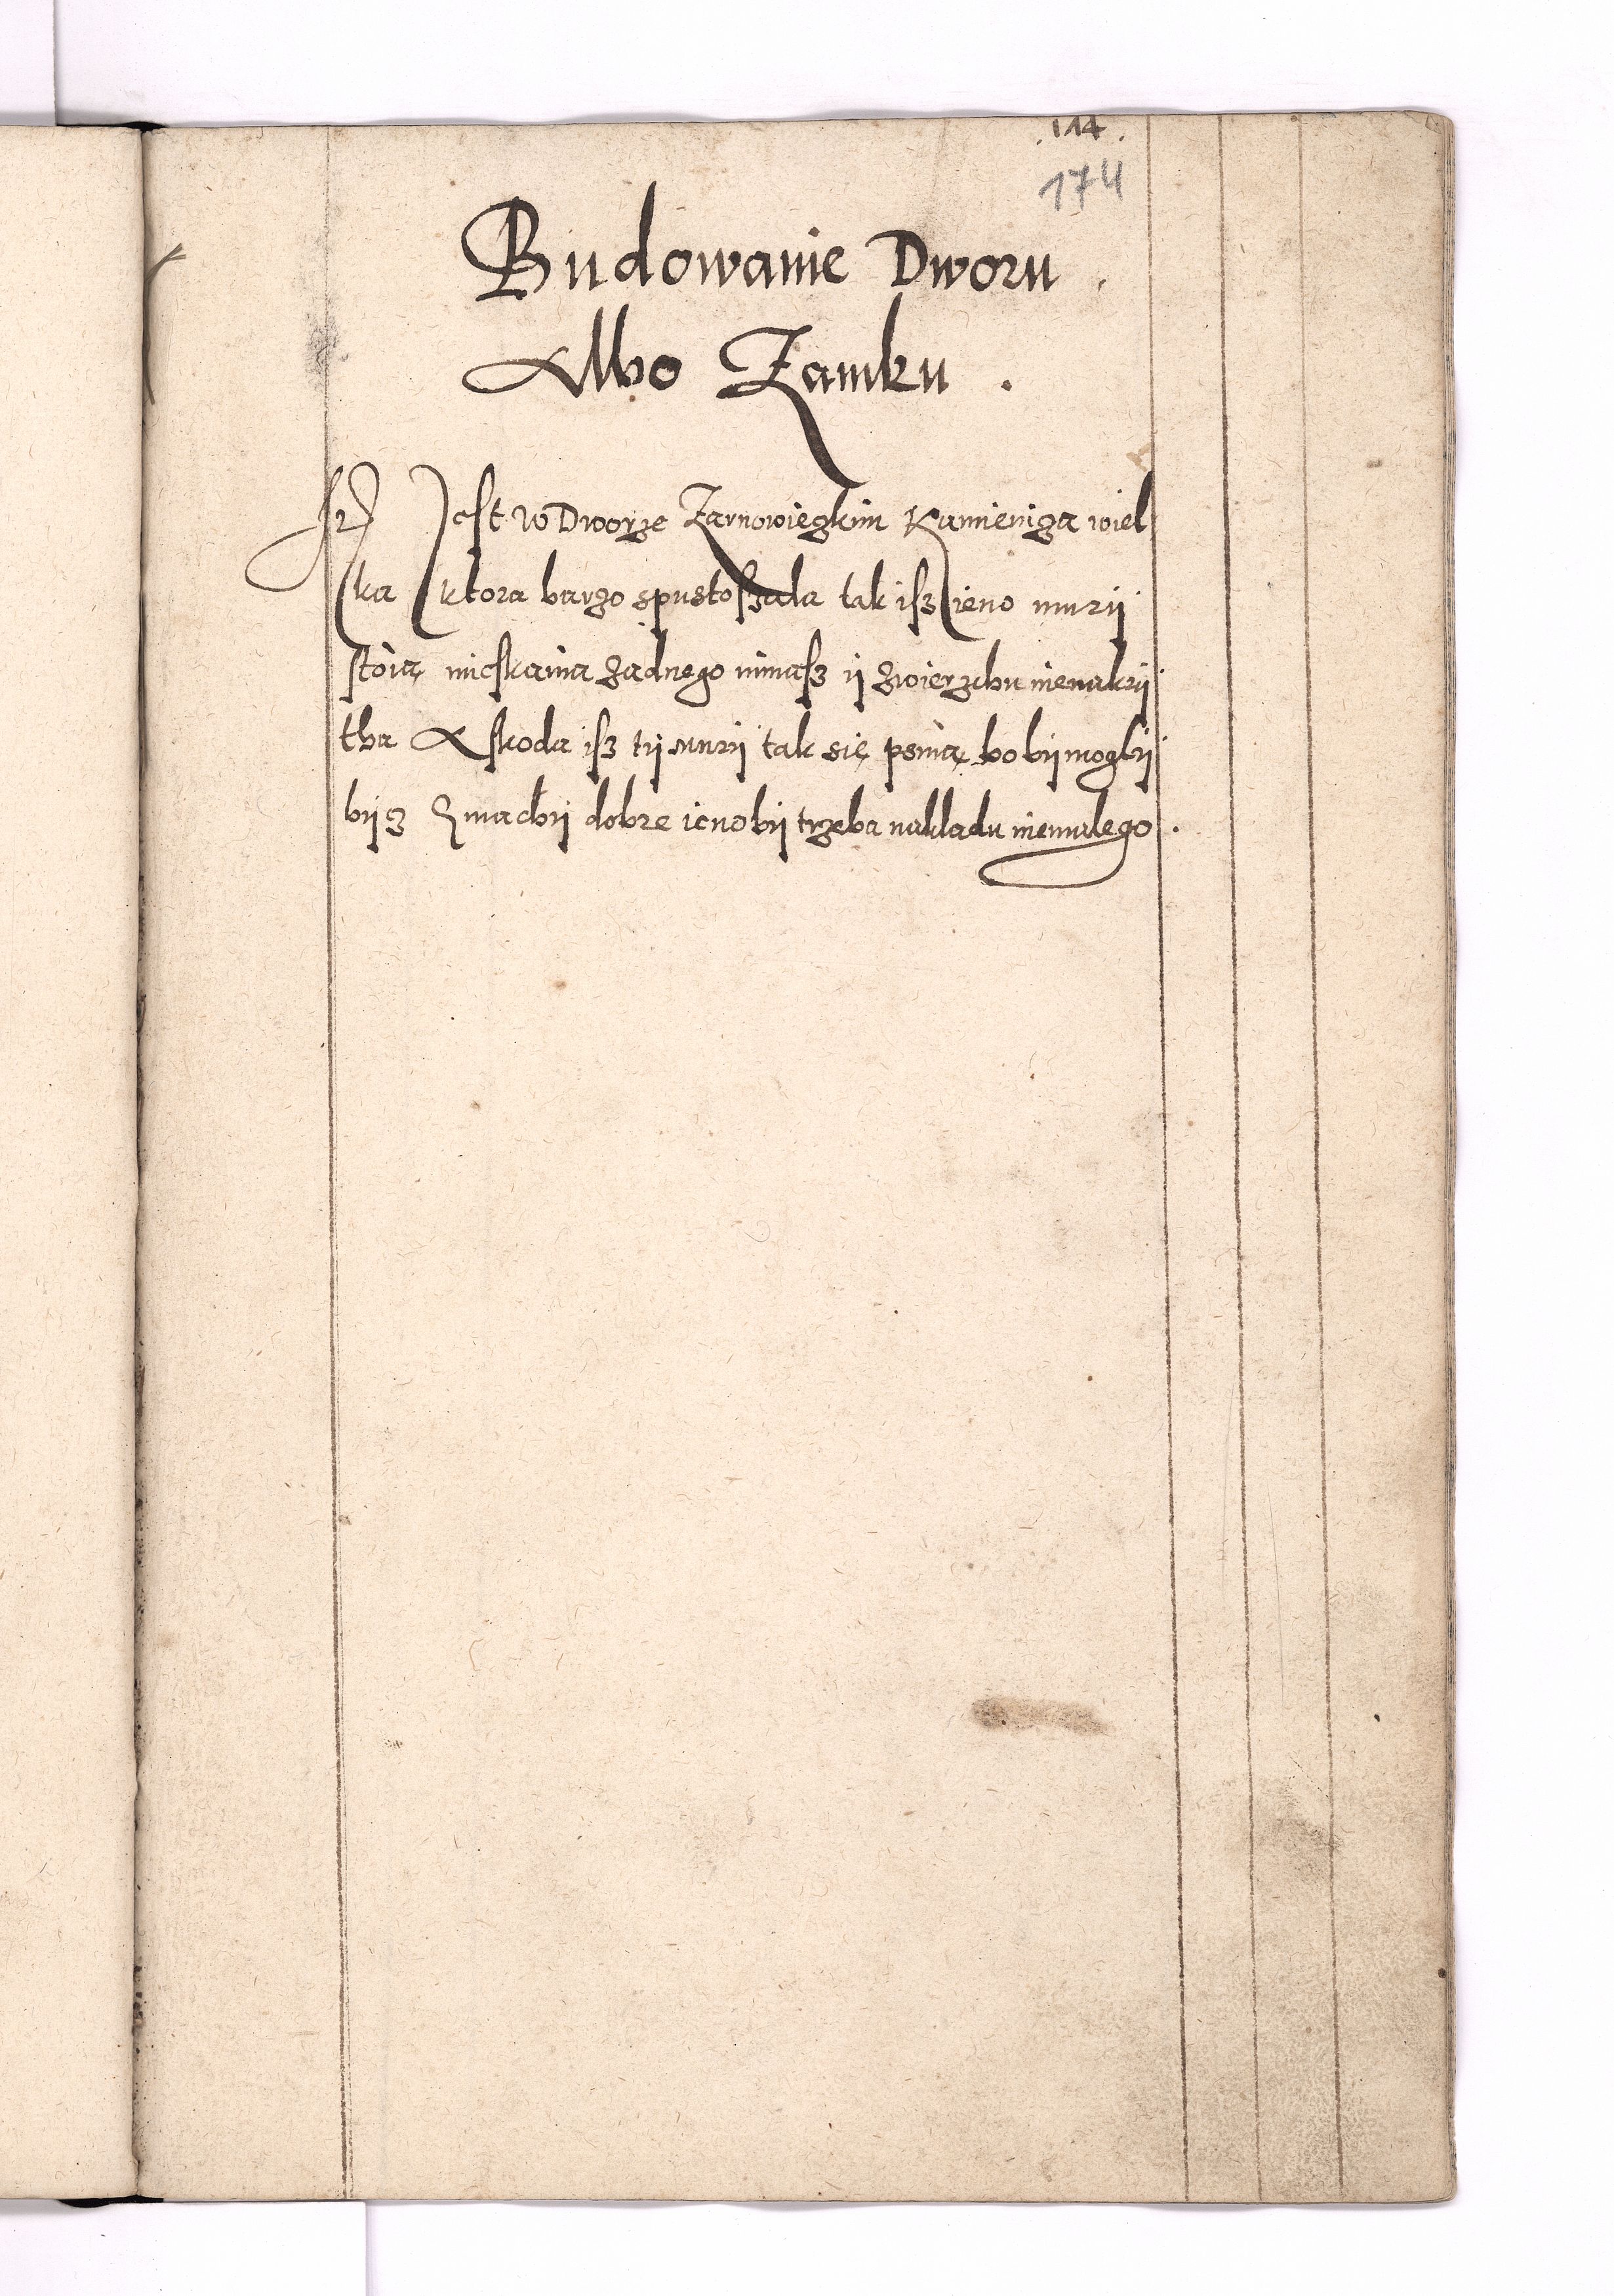 .114.
174
Budowanie Dworu .
Albo Zamku .
Jest w Dworze Zarnowieczkim Kamienicza wiel
ka ktora barzo spustoszala tak isz ieno murÿ
stoią mieskania zadnego nimasz ÿ zwierzchu nienakrÿ
tha A skoda isz tÿ murÿ tak się psuią bo bÿ moglÿ
bÿ z Gmachÿ dobre ieno bÿ trzeba nakladu niemalego .